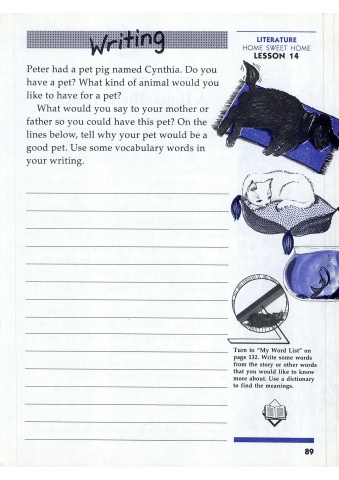 Writing
Peter had a pet pig named Cynthia. Do you
have a pet? What kind of animal would you
like to have for a pet?
What would you say to your mother or
father so you could have this pet? On the
lines below, tell why your pet would be a
good pet. Use some vocabulary words in
your writing.
LITERATURE
HOME SWEET HOME
LESSON 14
Turn to "My Word List" on
page 132. Write some words
from the story or other words
that you would like to know
more about. Use a dictionary
to find the meanings.
89